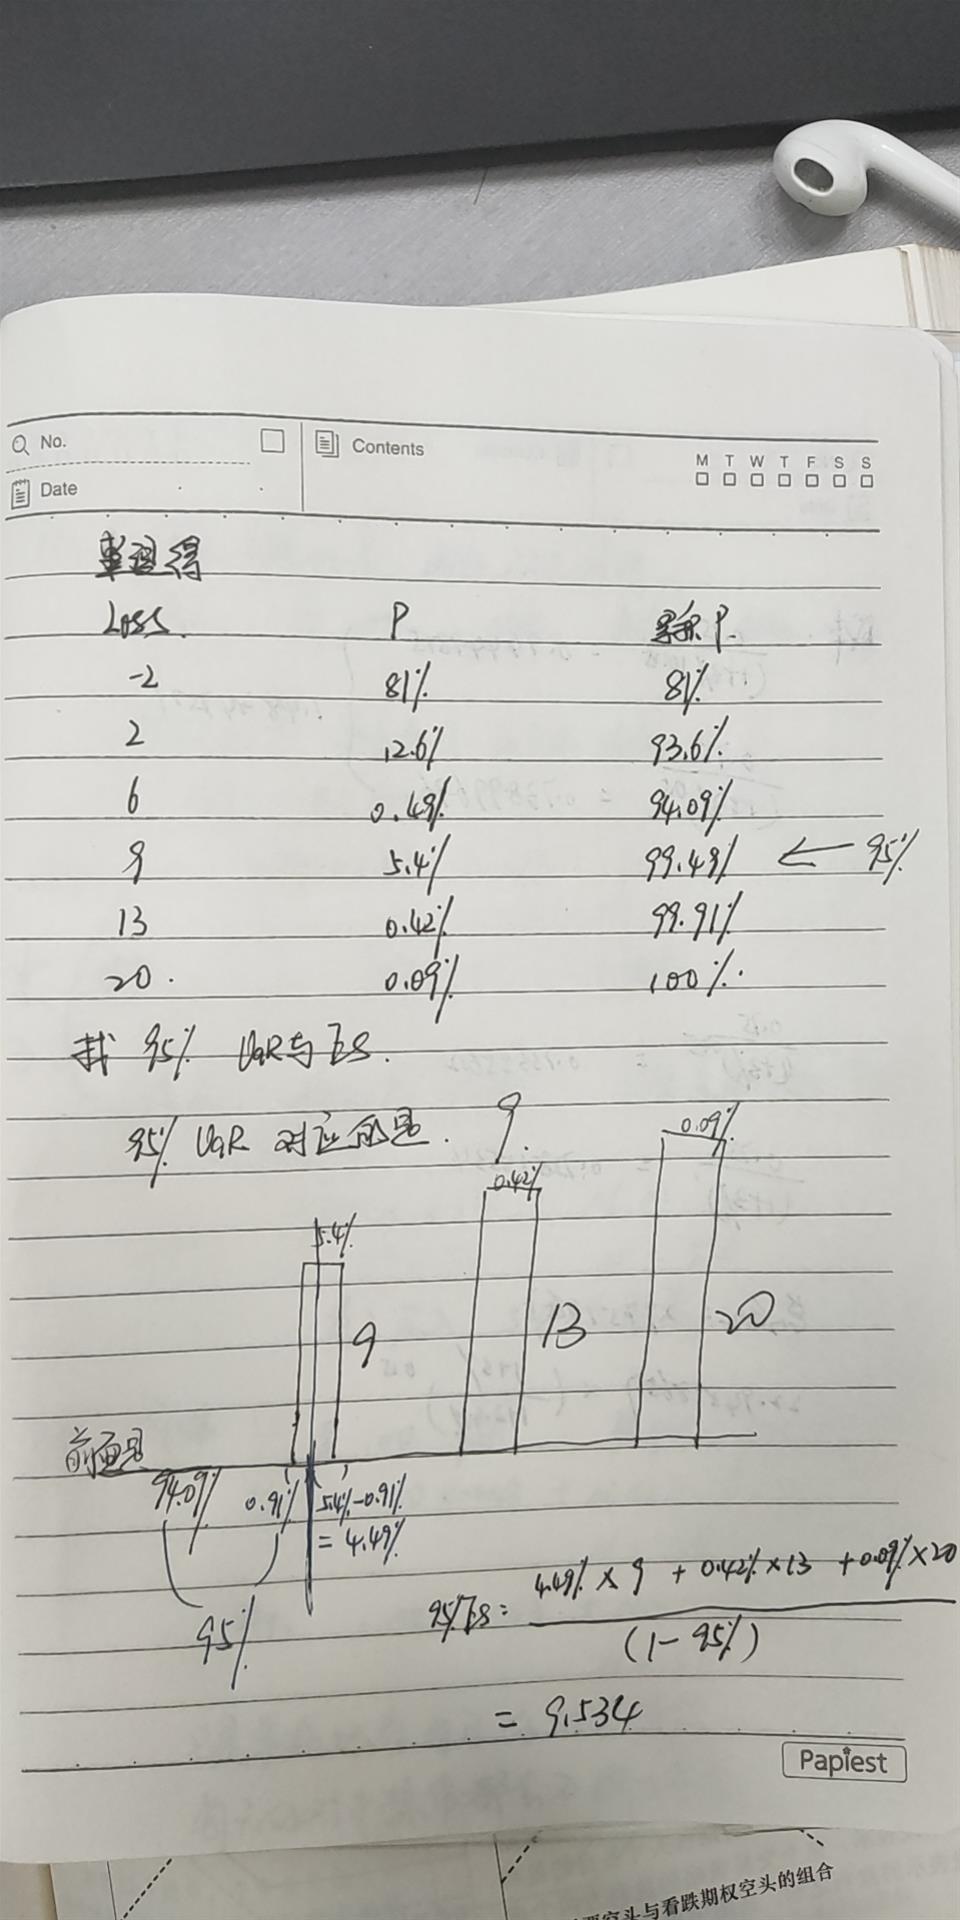 No.
Contents
M T W T F S S
Date
整理得
Loss. P 累积P.
-2 81% 81%
2 12.6% 93.6%
6 0.49% 94.09%
9 5.4% 99.49% ← 95%
13 0.42% 99.91%
20. 0.09% 100%.
找 95% VaR与ES.
95% VaR 对应的是. 9.
5.4% 0.42% 0.09%
9 13 20
前面是
94.09% 0.91% 5.4%-0.91%
= 4.49%
95%
95%ES = 4.49% × 9 + 0.42% × 13 + 0.09% × 20
(1-95%)
= 9.534
Papiest
空头与看跌期权空头的组合